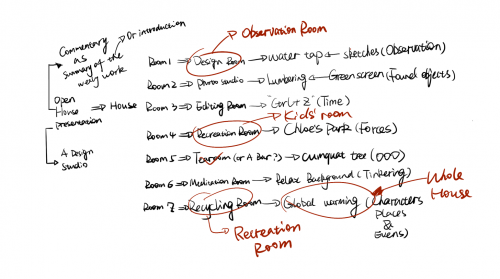 Observation Room
Commentary as summary of the early work
Or introduction
Open House presentation
House
A Design Studio
Room 1 Design Room water tap sketches (Observation)
Room 2 Photo studio Lumbering Green screen (Found objects)
Room 3 Editing Room "Ctrl+Z" (Time)
Kids' room
Room 4 Recreation Room Chloe's Park (Forces)
Room 5 Tearoom (or A Bar?) cumquat tree (OOO)
Room 6 Meditation Room Relax Background (Tinkering)
Whole House
Room 7 Recycling Room Global warming (Characters
Places
&
Evens)
Recreation Room